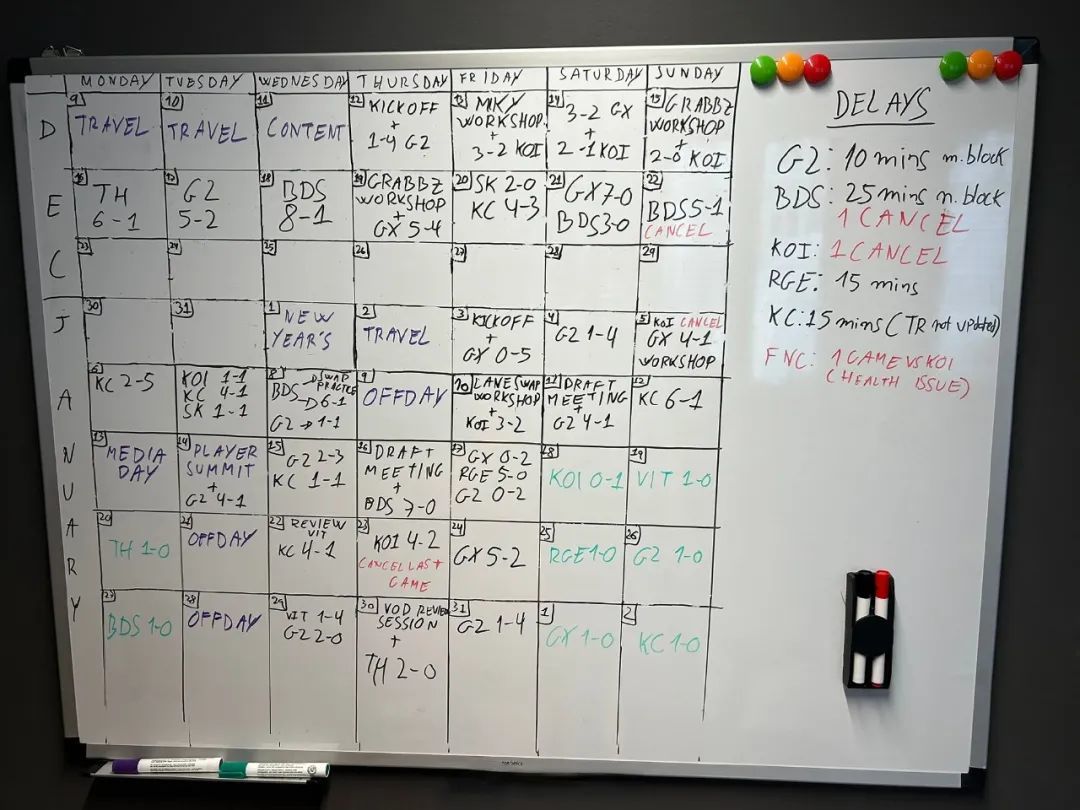 MONDAY TUESDAY WEDNESDAY THURSDAY FRIDAY SATURDAY SUNDAY
DEC
9 TRAVEL
10 TRAVEL
11 CONTENT
12 KICKOFF
+
1-4 G2
13 MKY
WORKSHOP
+
3-2 KOI
14 3-2 GX
+
2-1 KOI
15 GRABBZ
WORKSHOP
+
2-0 KOI
16 TH
6-1
17 G2
5-2
18 BDS
8-1
19 GRABBZ
WORKSHOP
+
GX 5-4
20 SK 2-0
KC 4-3
21 GX 7-0
BDS 3-0
22
BDS 5-1
CANCEL
23
24
25
26
27
28
29
JANUARY
30
31
1 NEW
YEAR'S
2
TRAVEL
3 KICKOFF
+
GX 0-5
4
G2 1-4
5 KOI CANCEL
GX 4-1
WORKSHOP
6
KC 2-5
7
KOI 1-1
KC 4-1
SK 1-1
8 SWAP
BDS → PRACTICE
→ 6-1
G2 → 1-1
9
OFFDAY
10 LANESWAP
WORKSHOP
+
KOI 3-2
11 DRAFT
MEETING
+
G2 4-1
12
KC 6-1
13 MEDIA
DAY
14 PLAYER
SUMMIT
+
G2 4-1
15 G2 2-3
KC 1-1
16 DRAFT
MEETING
+
BDS 7-0
17 GX 0-2
RGE 5-0
G2 0-2
18
KOI 0-1
19
VIT 1-0
20
TH 1-0
21
OFFDAY
22 REVIEW
VIT
KC 4-1
23
KOI 4-2
CANCEL LAST
GAME
24
GX 5-2
25
RGE 1-0
26
G2 1-0
27
BDS 1-0
28
OFFDAY
29
VIT 1-4
G2 2-0
30 VOD REVIEW
SESSION
+
TH 2-0
31
G2 1-4
1
GX 1-0
2
KC 1-0
DELAYS
G2: 10 mins m.block
BDS: 25 mins n.block
1 CANCEL
KOI: 1 CANCEL
RGE: 15 mins
KC: 15 mins (TR not updated)
FNC: 1 GAME VS KOI
(HEALTH ISSUE)